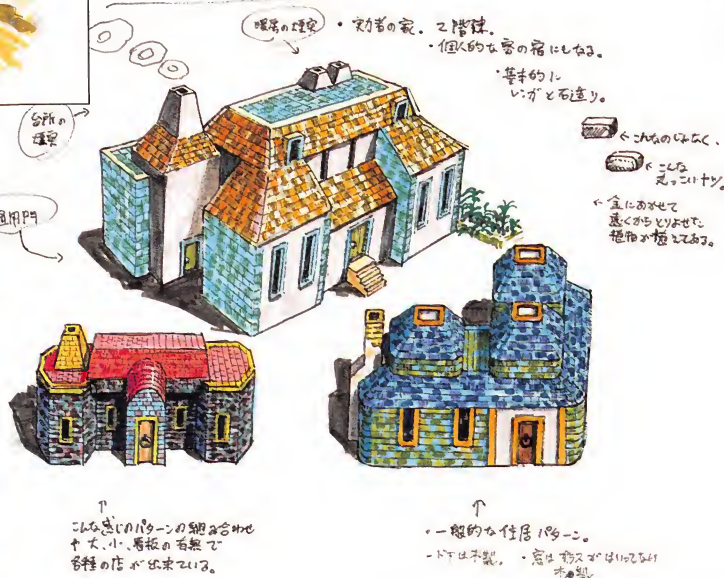 暖房の煙突
・実力者の家。2階建。
・個人的な客の宿にもなる。
・基本的に
レンガと石造り。
台所の
煙突
←こんなのじゃなく、
←こんな
丸っこいヤツ。
←金にあかせて
遠くからとりよせた
植物が植えてある。
通用門
↑
こんな感じのパターンの組み合わせ
や大、小、看板の有無で
各種の店が出来ている。
↑
・一般的な住居パターン。
・ドアは木製。・窓はガラスがはいってなく
木製